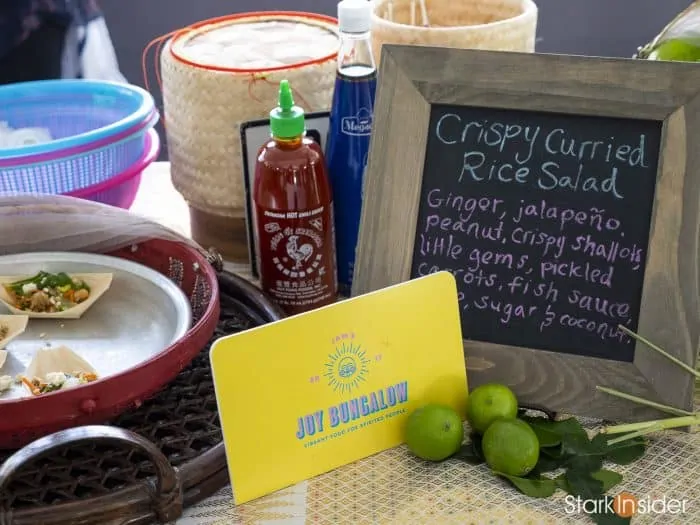 Crispy Curried
Rice Salad
Ginger, jalapeño,
peanut, crispy shallots,
little gems, pickled
carrots, fish sauce,
sugar & coconut.
JOY BUNGALOW
VIBRANT FOOD FOR SPIRITED PEOPLE
StarkInsider